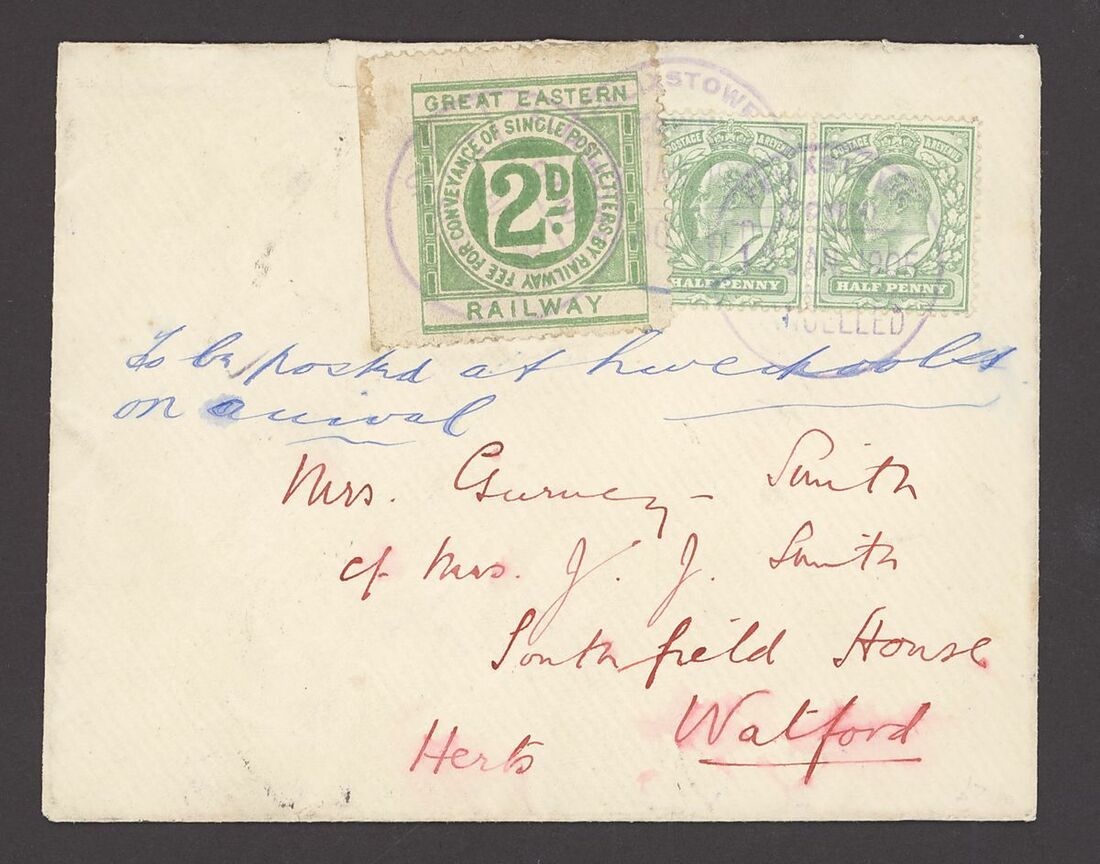 GREAT EASTERN
FEE FOR CONVEYANCE OF SINGLE POST LETTERS BY RAILWAY
2D.
RAILWAY
POSTAGE & REVENUE
HALF PENNY
POSTAGE & REVENUE
HALF PENNY
To be posted at
on arrival
Mrs. Gurney - Smith
c/- Mrs. J. J. Smith
Southfield House
Watford
Herts